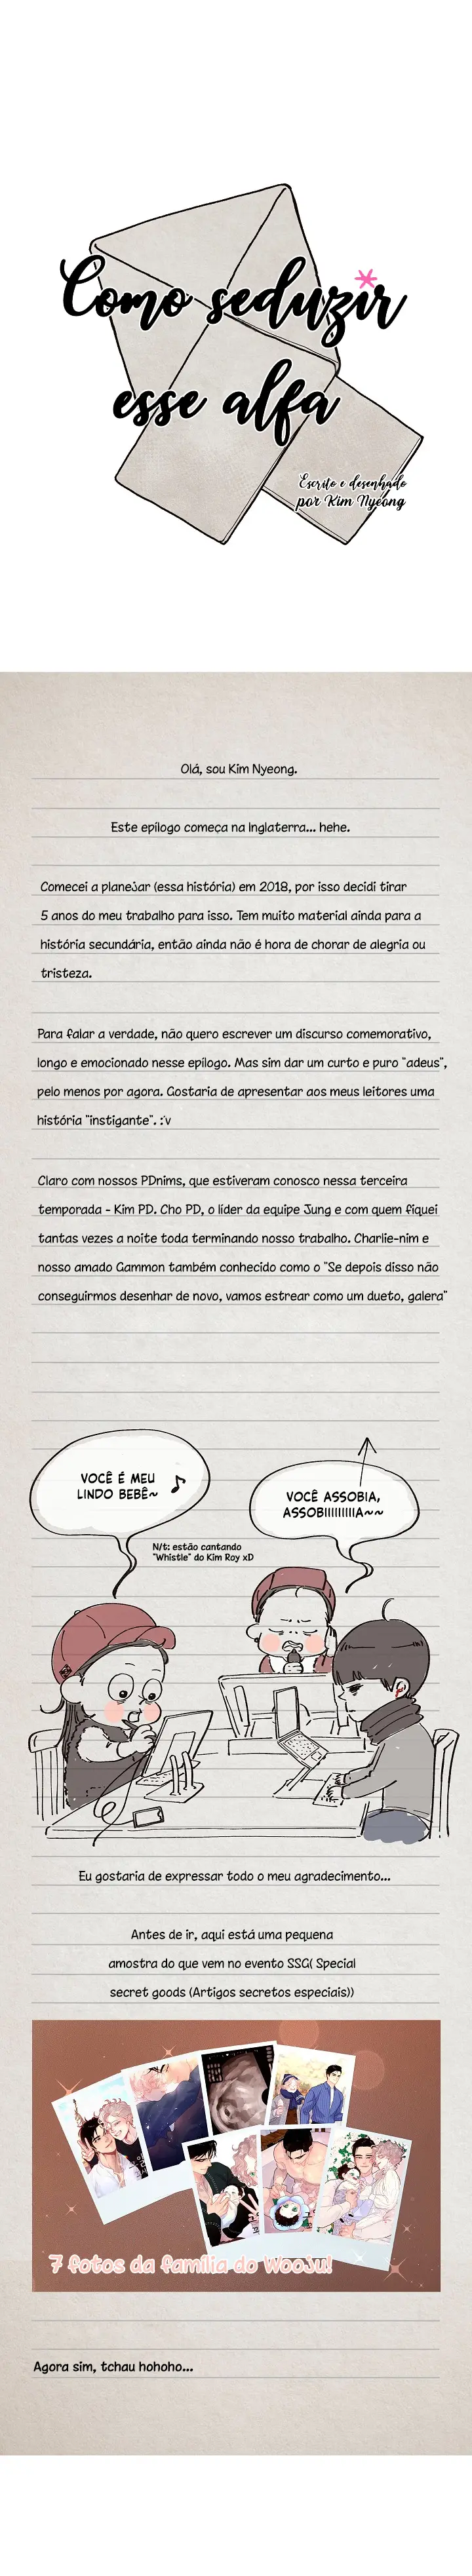 Como seduzir
esse alfa
Escrito e desenhado
por Kim Nyeong
Olá, sou Kim Nyeong.
Este epílogo começa na Inglaterra... hehe.
Comecei a planejar (essa história) em 2018, por isso decidi tirar
5 anos do meu trabalho para isso. Tem muito material ainda para a
história secundária, então ainda não é hora de chorar de alegria ou
tristeza.
Para falar a verdade, não quero escrever um discurso comemorativo,
longo e emocionado nesse epílogo. Mas sim dar um curto e puro "adeus",
pelo menos por agora. Gostaria de apresentar aos meus leitores uma
história "instigante". :'v
Claro com nossos PDnims, que estiveram conosco nessa terceira
temporada - Kim PD. Cho PD, o líder da equipe Jung e com quem fiquei
tantas vezes a noite toda terminando nosso trabalho. Charlie-nim e
nosso amado Gammon também conhecido como o "Se depois disso não
conseguirmos desenhar de novo, vamos estrear como um dueto, galera"
VOCÊ É MEU
LINDO BEBÊ~
VOCÊ ASSOBIA,
ASSOBIIIIIIIIIA~~
N/t: estão cantando
"Whistle" do Kim Roy xD
Eu gostaria de expressar todo o meu agradecimento...
Antes de ir, aqui está uma pequena
amostra do que vem no evento SSG( Special
secret goods (Artigos secretos especiais))
7 fotos da família do WooJu!
Agora sim, tchau hohoho...